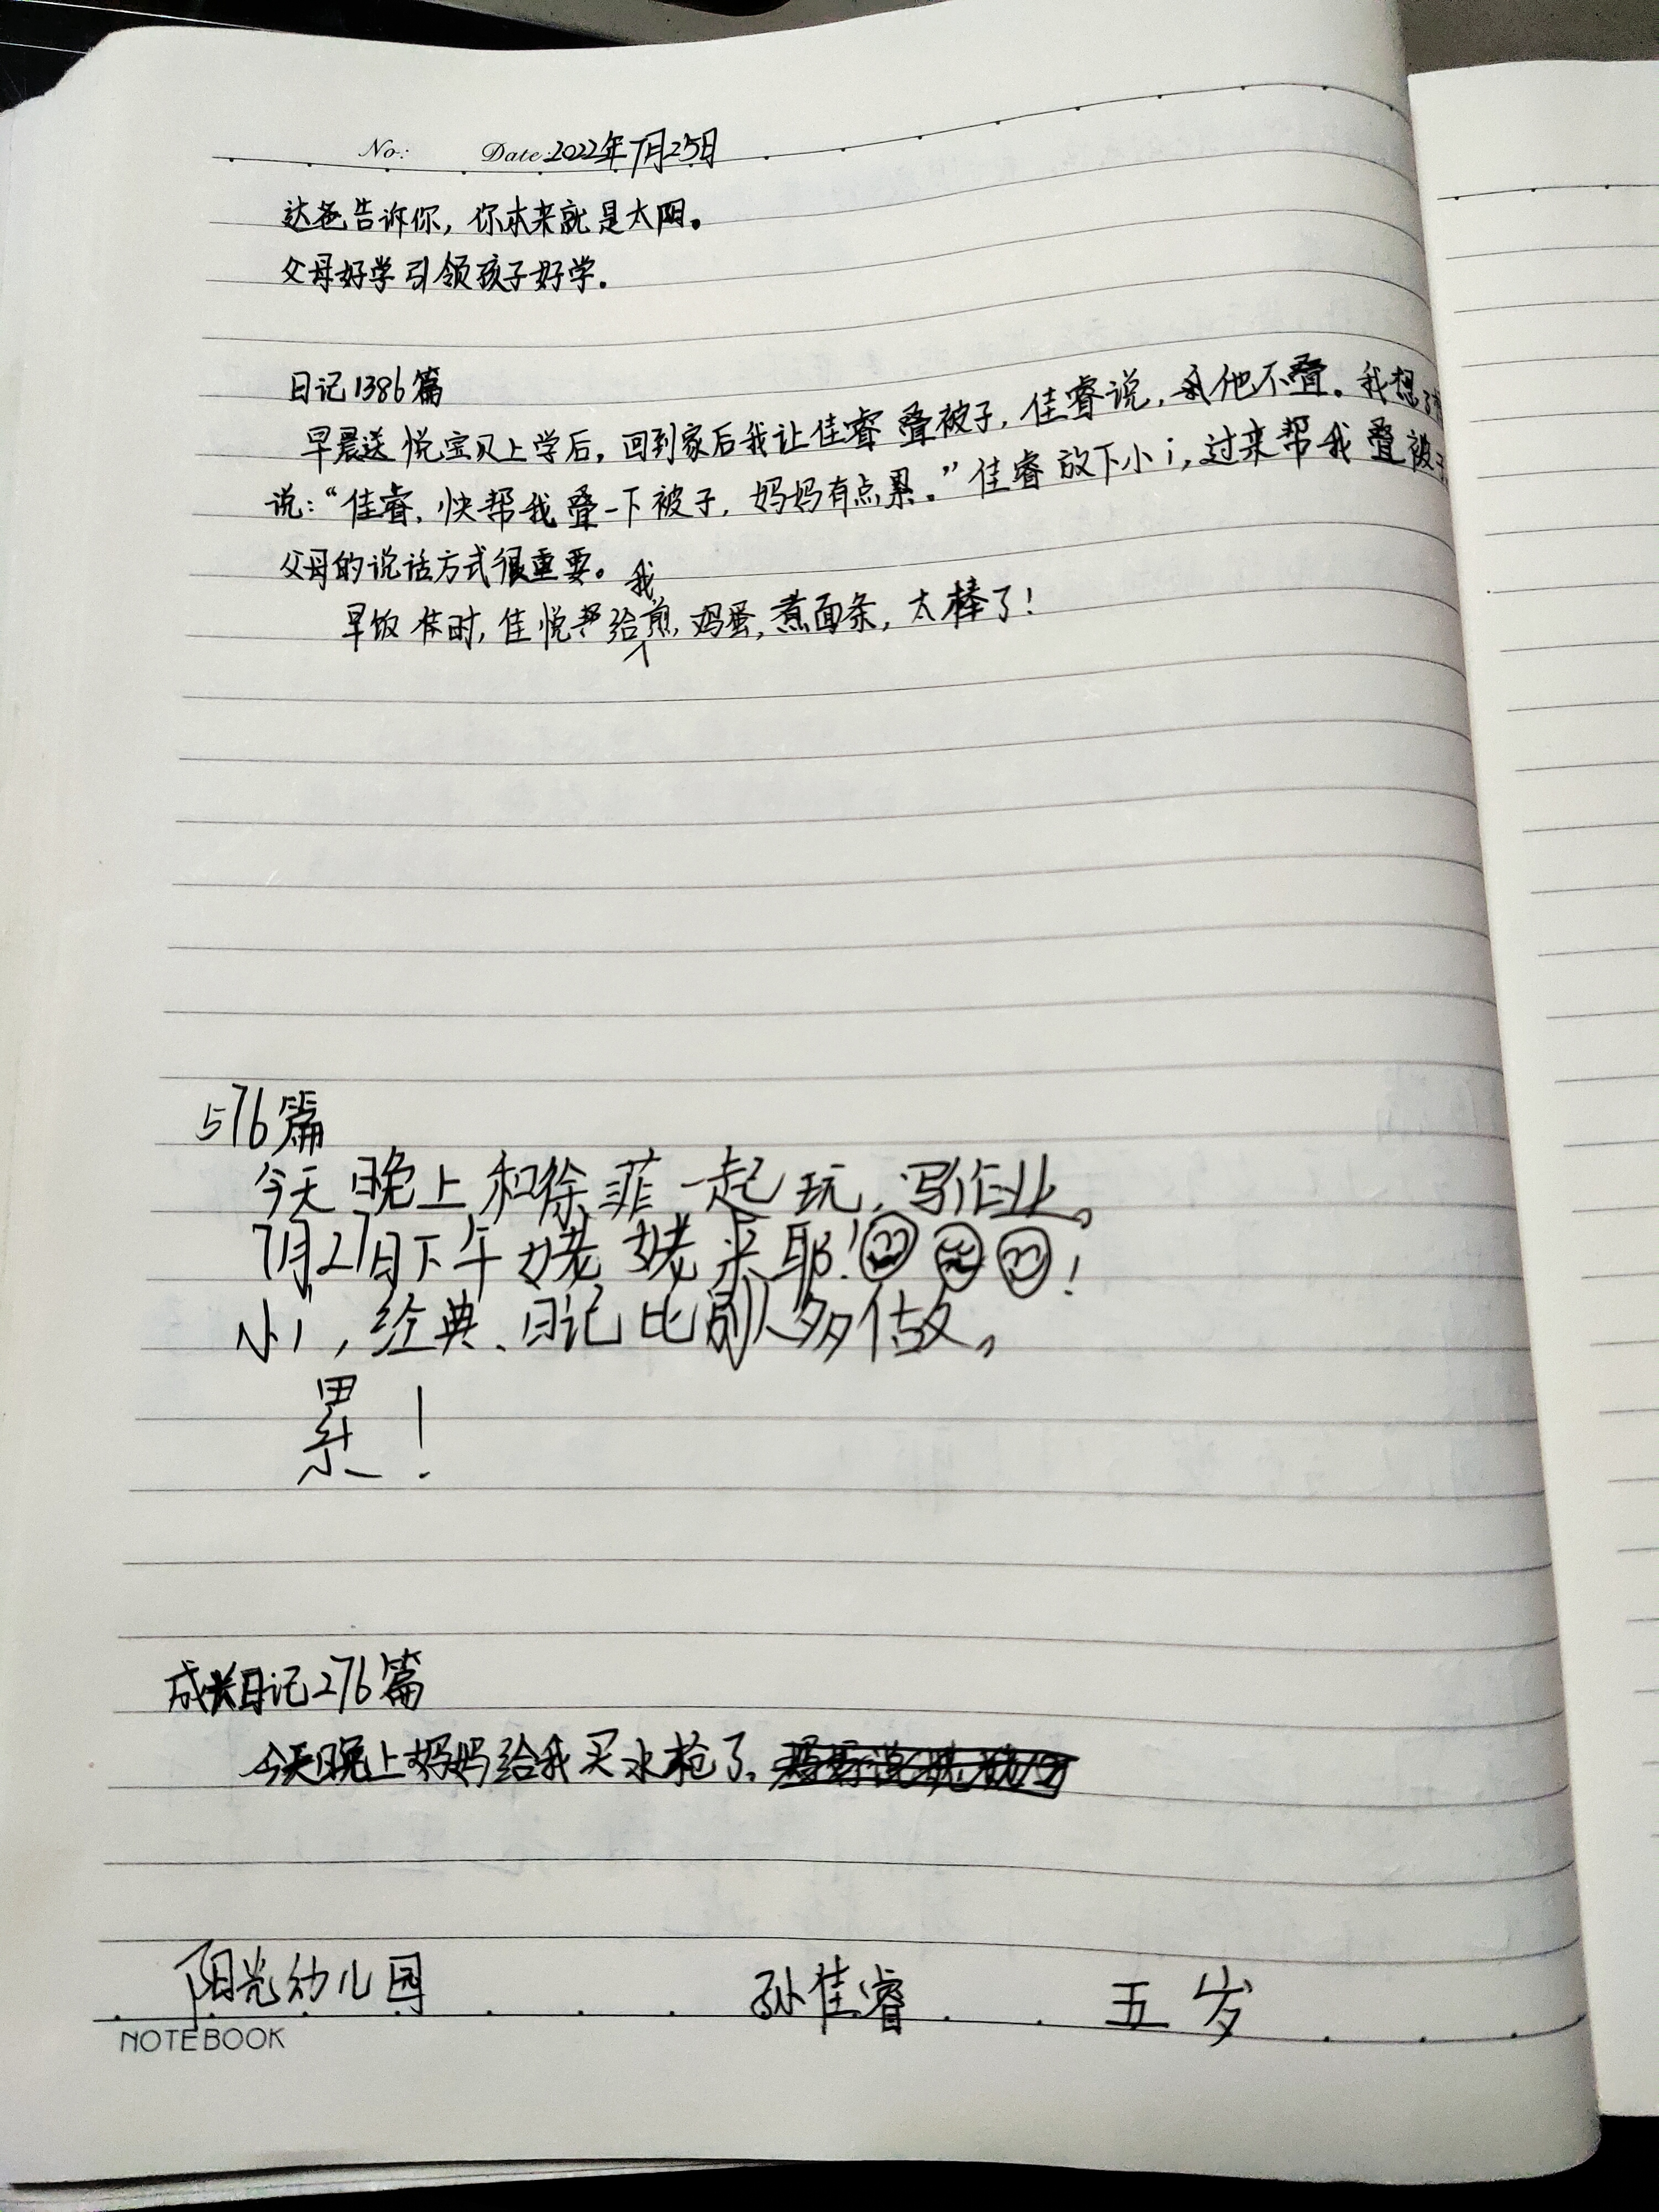 No: Date: 2022年7月25日
达爸告诉你，你本来就是太阳。
父母好学引领孩子好学。
日记1386篇
早晨送悦宝贝上学后，回到家后我让佳睿叠被子，佳睿说，他不叠。我想了
说：“佳睿，快帮我叠一下被子，妈妈有点累。”佳睿放下小i，过来帮我叠被
父母的说话方式很重要。
早饭时，佳悦给我煎鸡蛋，煮面条，太棒了！
576篇
今天晚上和徐菲一起玩，写作业。
7月27日下午姥姥来耶！！
小i，经典、日记比别人多做。
累！
成长日记276篇
今天晚上妈妈给我买水枪了，
阳光幼儿园 孙佳睿 五岁
NOTEBOOK